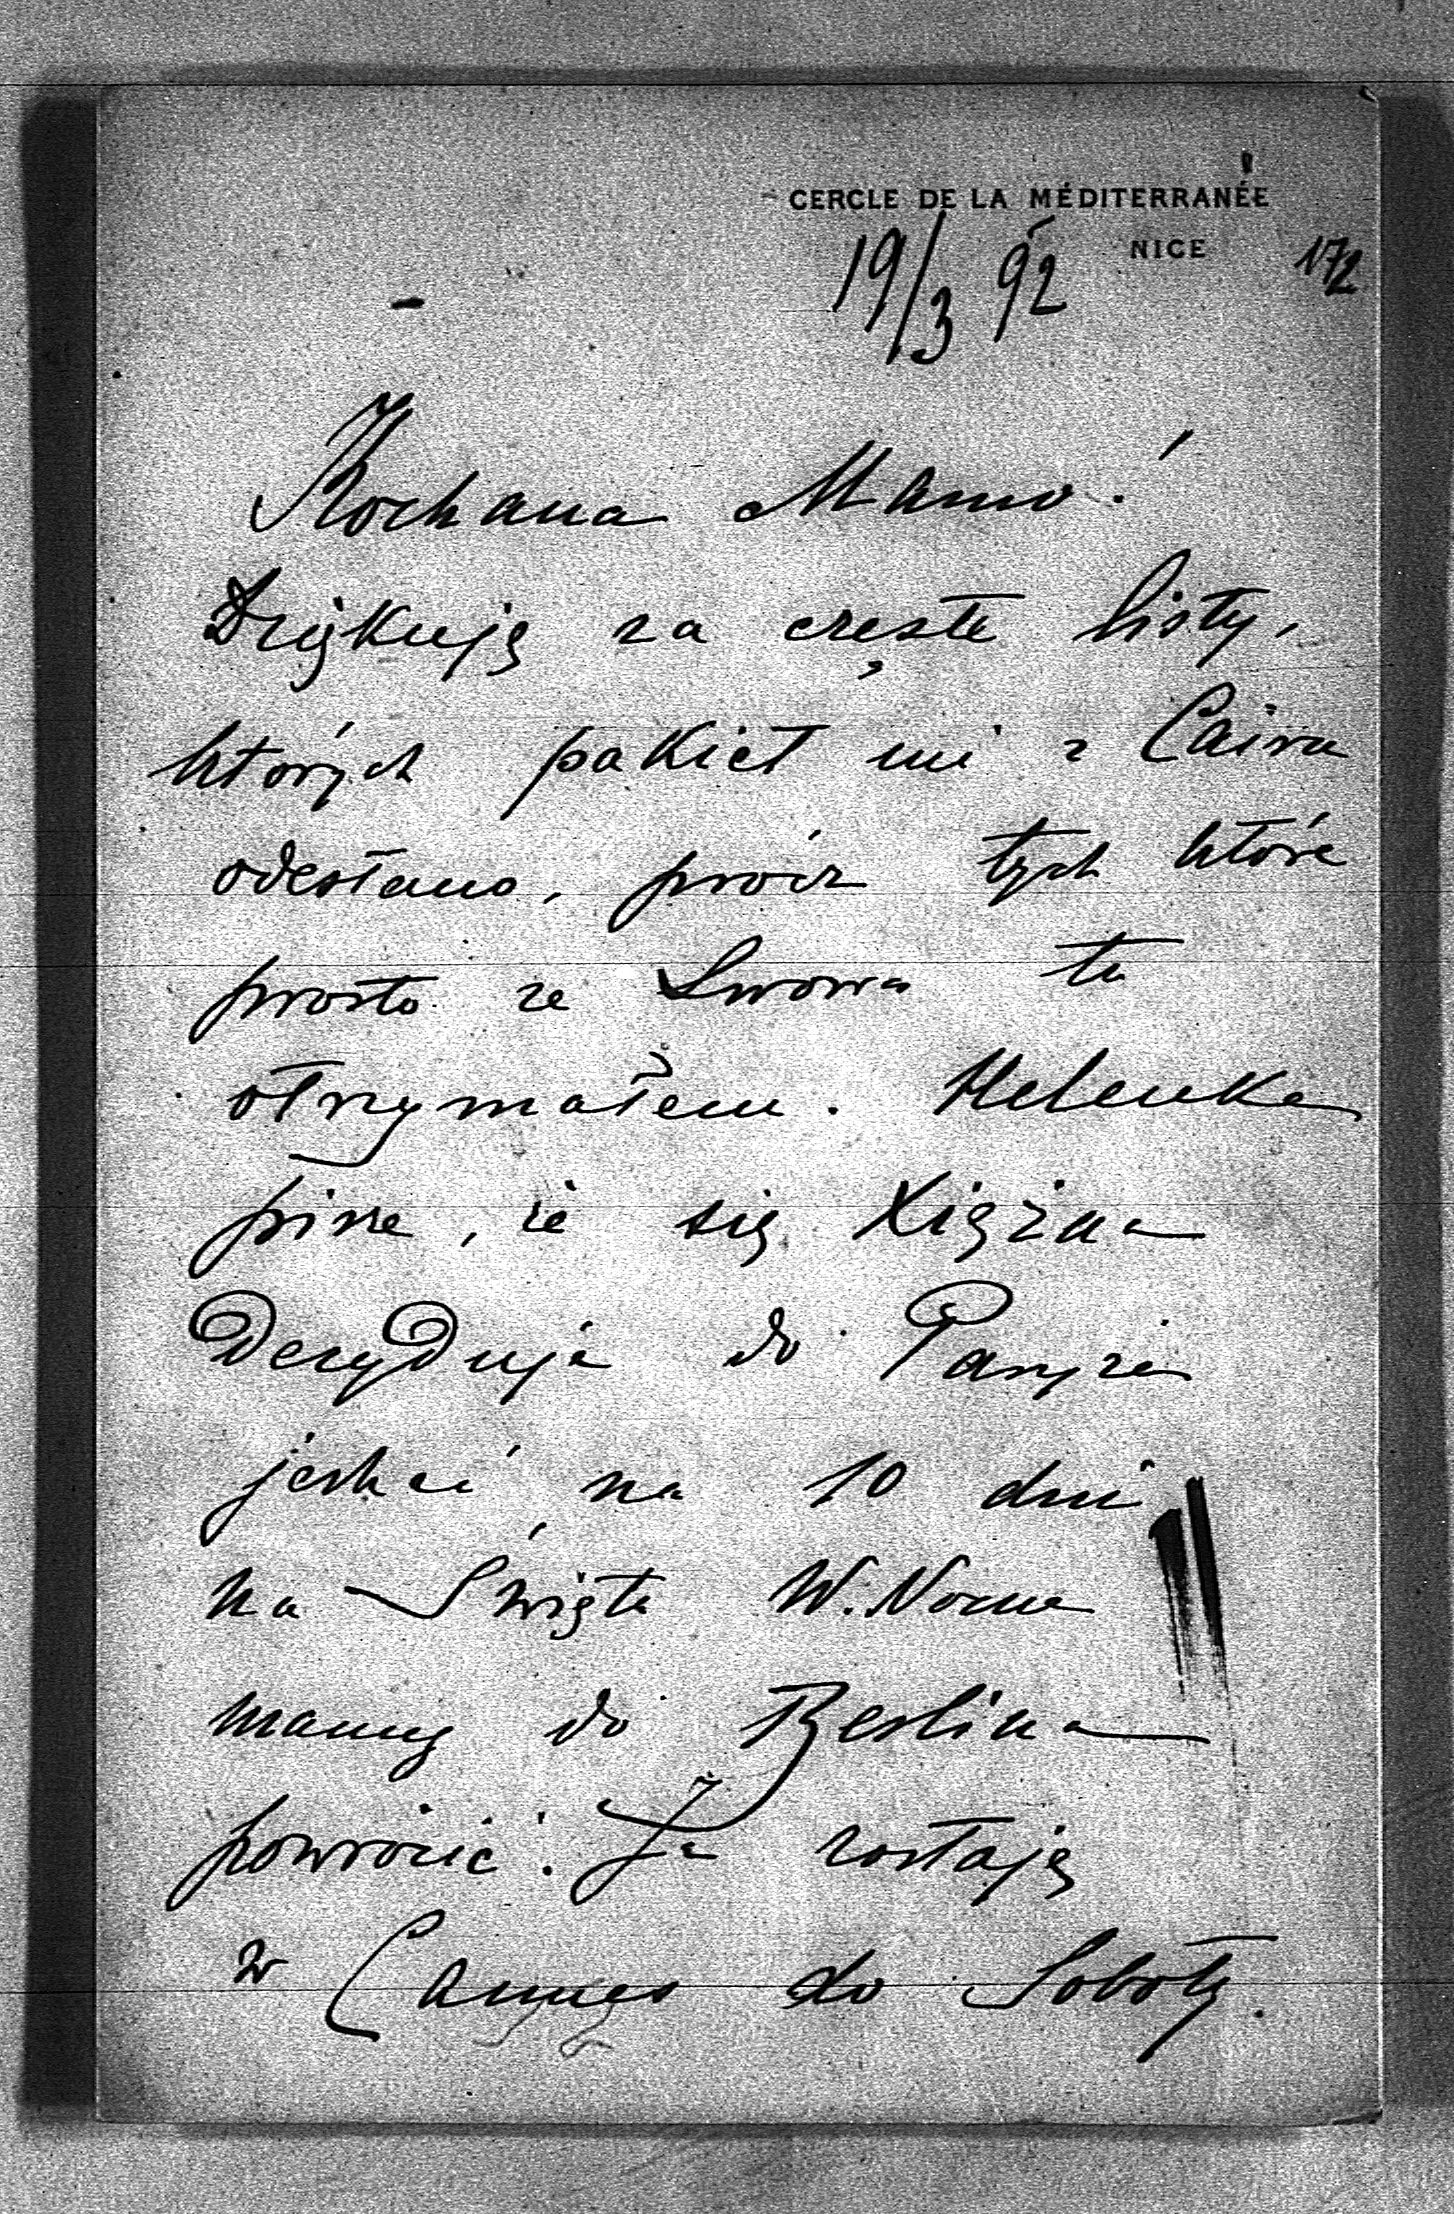 CERCLE DE LA MÉDITERRANÉE
NICE
172
19/3 92
Kochana Mamo!
Dziękuję za częste listy,
których pakiet mi z Caira
odesłano, prócz tych które
prosto ze Lwowa tu
otrzymałem. Helenka
pisze, że się Xiężna
decyduje do Paryża
jechać na 10 dni
na Święta W. Nocne
mamy do Berlina
powrócić. Ja zostaję
w Cannes do Soboty.